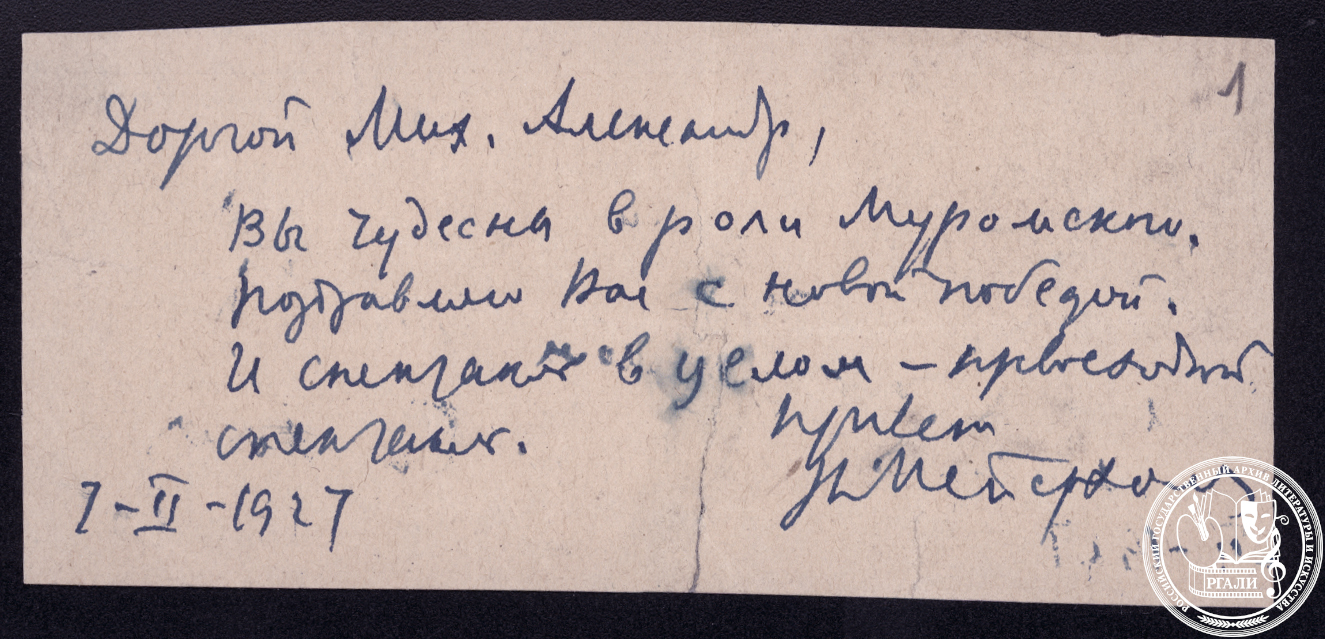 1
Дорогой Мих. Александр,
Вы чудесны в роли Муромского.
Поздравляю Вас с новой победой.
И спектакль в целом – превосходный
спектакль. Привет
В. Мейерхольд
7-II-1927
РОССИЙСКИЙ ГОСУДАРСТВЕННЫЙ АРХИВ ЛИТЕРАТУРЫ И ИСКУССТВА
РГАЛИ